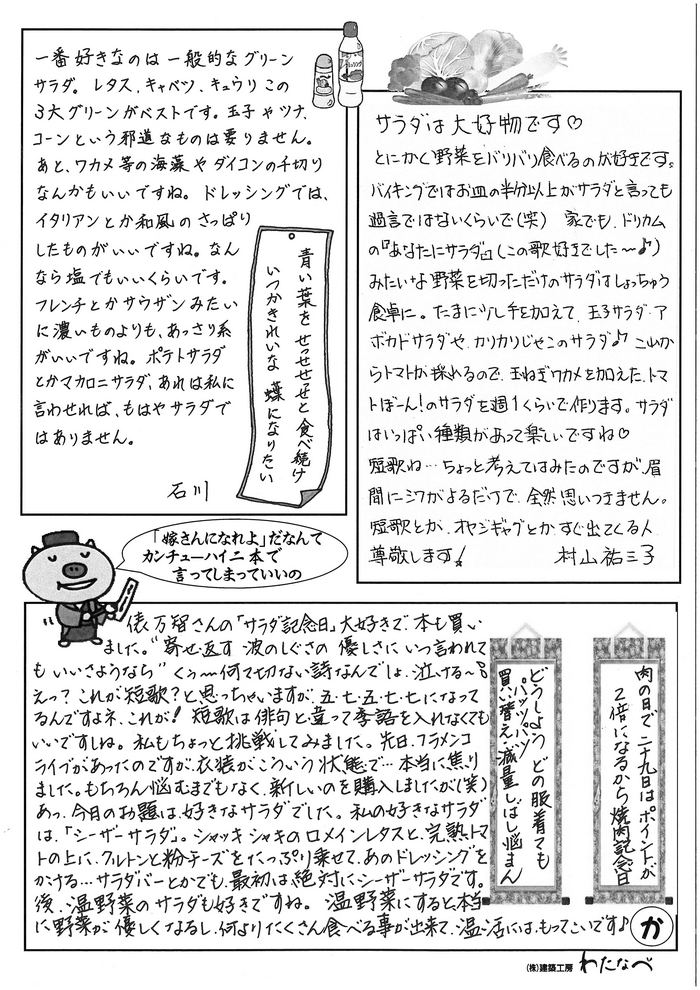 一番好きなのは一般的なグリーン
サラダ。レタス、キャベツ、キュウリこの
3大グリーンがベストです。玉子やツナ、
コーンという邪道なものは要りません。
あと、ワカメ等の海藻やダイコンの千切り
なんかもいいですね。ドレッシングでは、
イタリアンとか和風のさっぱり
したものがいいですね。なん
なら塩でもいいくらいです。
フレンチとかサウザンみたい
に濃いものよりも、あっさり系
がいいですね。ポテトサラダ
とかマカロニサラダ、あれは私に
言わせれば、もはやサラダで
はありません。
石川
青い葉を せっせせせと 食べ続け
いつかきれいな 蝶になりたい
サラダは大好物です♡
とにかく野菜をバリバリ食べるのが好きです。
バイキングではお皿の半分以上がサラダと言っても
過言ではないくらいで(笑) 家でも、ドリカム
の『あなたにサラダ』(この歌好きでした〜♪)
みたいな野菜を切っただけのサラダはしょっちゅう
食卓に。たまに少し手を加えて、玉子サラダ・ア
ボカドサラダや、カリカリじゃこのサラダ♪ これか
らトマトが採れるので、玉ねぎワカメを加えた、トマ
トぼーん!のサラダを週1くらいで作ります。サラダ
はいっぱい種類があって楽しいですね♡
短歌ね…ちょっと考えてはみたのですが、眉
間にシワがよるだけで、全然思いつきません。
短歌とか、オヤジギャグとか、すぐ出てくる人
尊敬します!
村山祐三子
「嫁さんになれよ」だなんて
カンチューハイ二本で
言ってしまっていいの
俵万智さんの「サラダ記念日」大好きで、本も買い
ました。"寄せ返す 波のしぐさの 優しさに いつ言われて
もいいさようなら" くぅ〜何て切ない詩なんでしょ、泣ける〜
えっ?これが短歌?と思っちゃいますが、五・七・五・七・七になって
るんですよネ、これが! 短歌は俳句と違って季語を入れなくても
いいですしね。私もちょっと挑戦してみました。先日、フラメンコ
ライブがあったのですが、衣装がこういう状態で…本当に焦り
ました。もちろん悩むまでもなく、新しいのを購入しましたが(笑)
あっ、今日のお題は、好きなサラダでした。私の好きなサラダ
は、「シーザーサラダ」。シャッキシャキのロメインレタスと、完熟トマ
トの上に、クルトンと粉チーズをたっぷり乗せて、あのドレッシングを
かける…サラダバーとかでも、最初は絶対にシーザーサラダです。
後、温野菜のサラダも好きですね。温野菜にすると、本当
に野菜が優しくなるし、何よりたくさん食べる事が出来て、温活にはもってこいです♪
か
肉の日で 二十九日は ポイントが
2倍になるから 焼肉記念日
どうしよう どの服着ても
パッツパツ
買い替え・減量 しばし悩まん
(株)建築工房 わたなべ